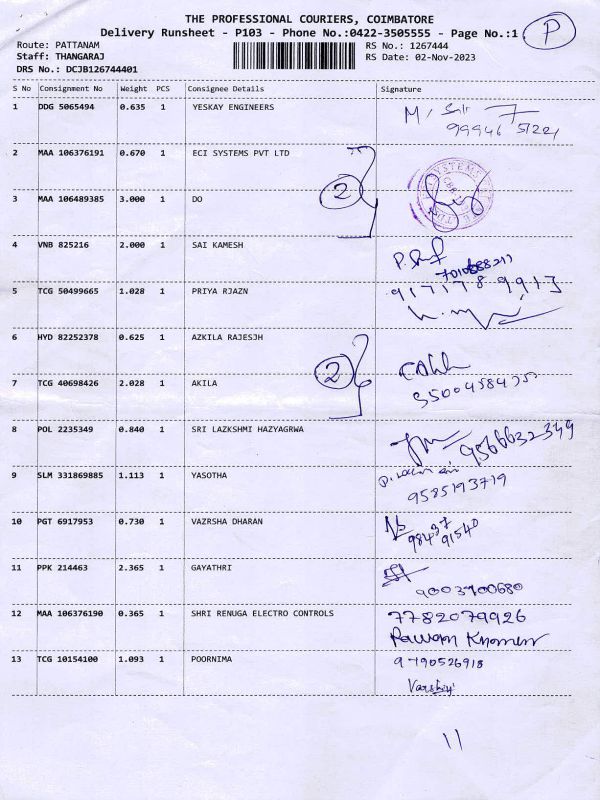 THE PROFESSIONAL COURIERS, COIMBATORE
Delivery Runsheet - P103 - Phone No.:0422-3505555 - Page No.:1
P
Route: PATTANAM
RS No.: 1267444
Staff: THANGARAJ
RS Date: 02-Nov-2023
DRS No.: DCJB126744401
S No Consignment No Weight PCS Consignee Details Signature
1 DDG 5065494 0.635 1 YESKAY ENGINEERS
99946 51221
2 MAA 106376191 0.670 1 ECI SYSTEMS PVT LTD
2
3 MAA 106489385 3.000 1 DO
4 VNB 825216 2.000 1 SAI KAMESH
5 TCG 50499665 1.028 1 PRIYA RJAZN
6 HYD 82252378 0.625 1 AZKILA RAJESJH
2
7 TCG 40698426 2.028 1 AKILA
8 POL 2235349 0.840 1 SRI LAZKSHMI HAZYAGRWA
9566632349
9 SLM 331869885 1.113 1 YASOTHA
9585193719
10 PGT 6917953 0.730 1 VAZRSHA DHARAN
98437
91540
11 PPK 214463 2.365 1 GAYATHRI
9003900680
12 MAA 106376190 0.365 1 SHRI RENUGA ELECTRO CONTROLS
7782079926
13 TCG 10154100 1.093 1 POORNIMA
9790526918
11